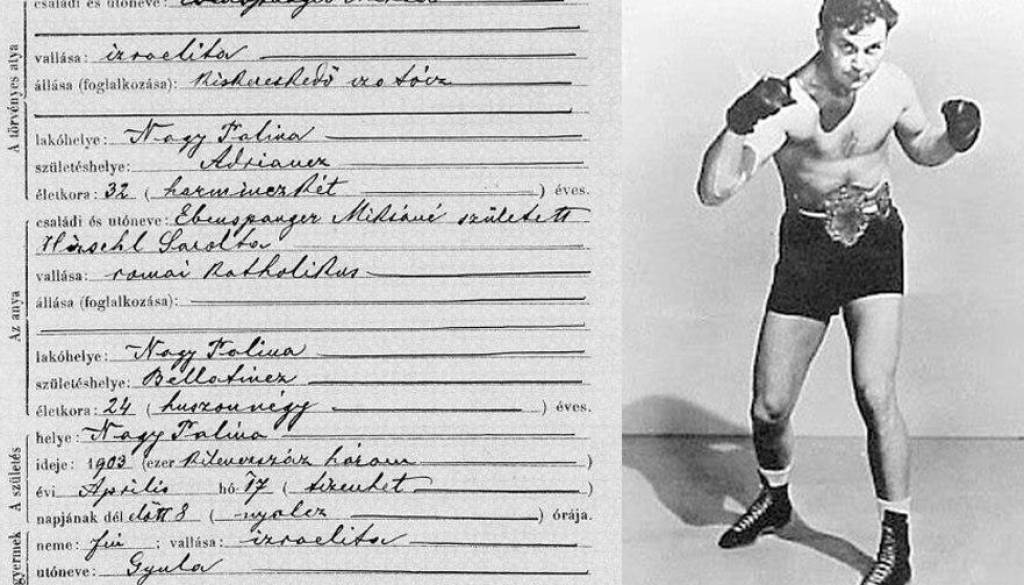 családi és utóneve:
A törvényes atya
vallása: izraelita
állása (foglalkozása): Kiskereskedő
lakóhelye: Nagy Falina
születéshelye: Adriancz
életkora: 32 (harminczkét) éves.
Az anya
családi és utóneve: Ebenspanger Miksáné született
Hirschl Sarolta
vallása: romai katholikus
állása (foglalkozása):
lakóhelye: Nagy Falina
születéshelye: Bellatincz
életkora: 24 (huszonnégy) éves.
A születés
helye: Nagy Falina
ideje: 1903 (ezer kilenczszáz három)
évi Április hó: 17 (tizenhét)
napjának dél előtt 8 (nyolcz) órája.
gyermek
neme: fiú; vallása: izraelita
utóneve: Gyula